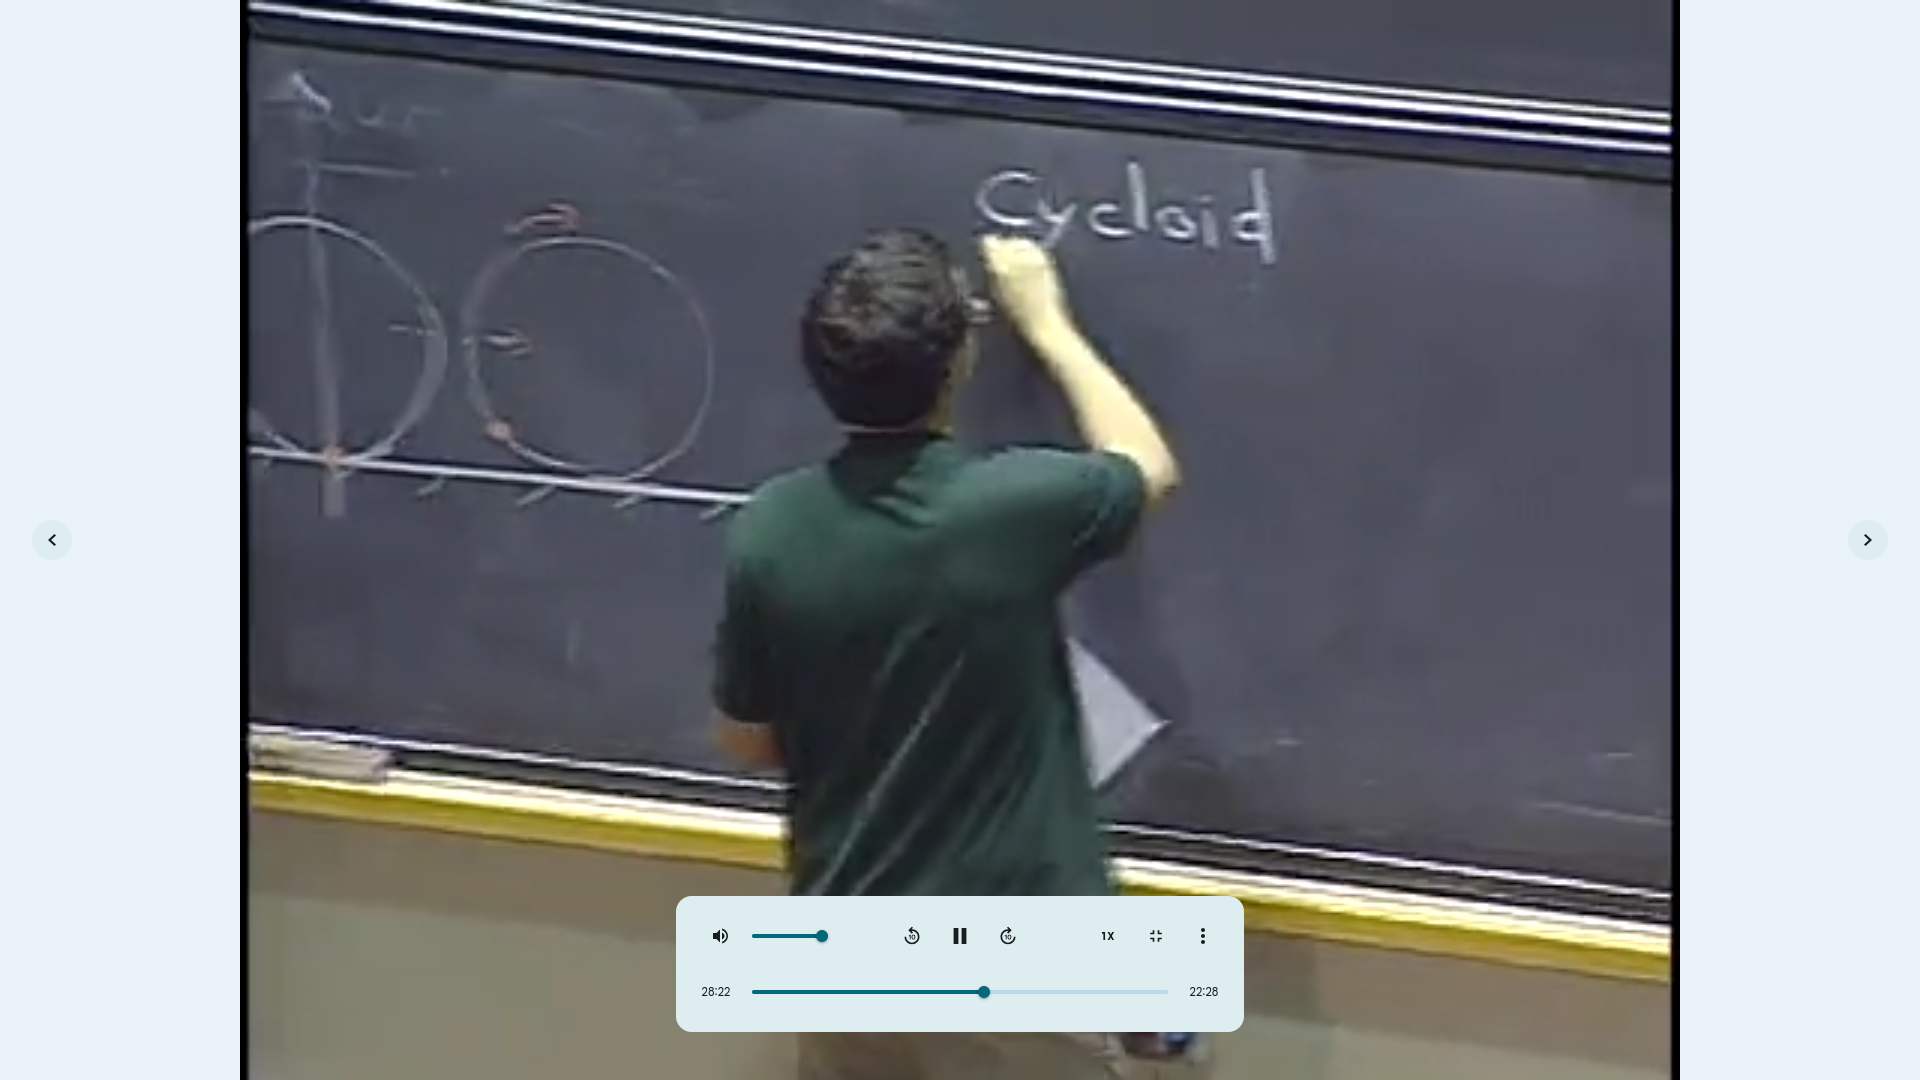 Cycloid
10
10
1X
28:22
22:28